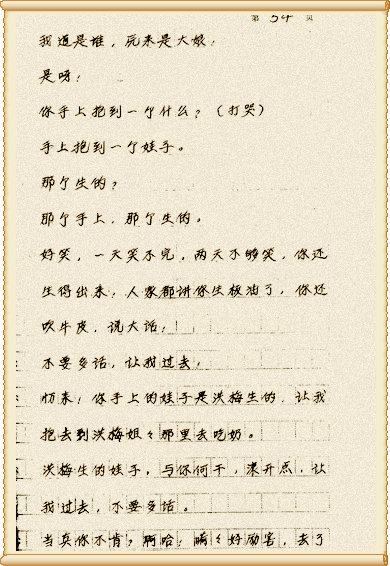 第 54 页
我道是谁，原来是大娘！
是呀！
你手上抱到一个什么？（打哭）
手上抱到一个娃子。
那个生的？
那个手上，那个生的。
好笑，一天笑不完，两天不够笑，你还
生得出来！人家都讲你生板油了，你还
吹牛皮，说大话！
不要多话，让我过去！
慢来！你手上的娃子是洪梅生的，让我
抱去到洪梅姐々那里去吃奶。
洪梅生的娃子，与你何干，滚开点，让
我过去，不要多话。
当真你不肯？啊哈！嘴々好励害，去了